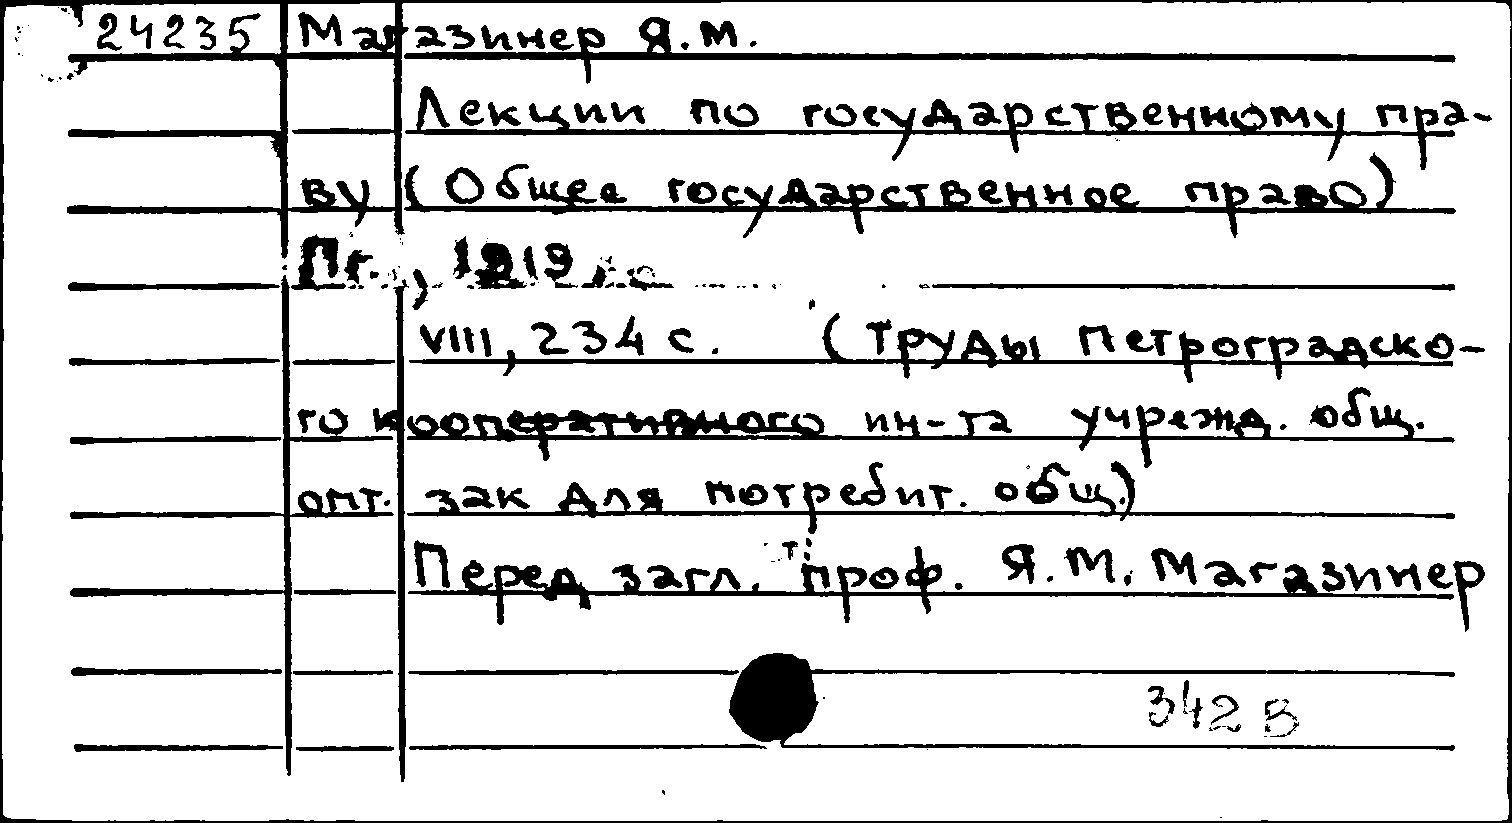 24235 Магазинер Я.М.
Лекции по государственному пра-
ву (Общее государственное право)
Пг., 1919.
VIII, 234 с. (Труды Петроградско-
го кооперативного ин-та учрежд. общ.
опт. зак для потребит. общ.)
Перед загл. проф. Я.М. Магазинер
342 В